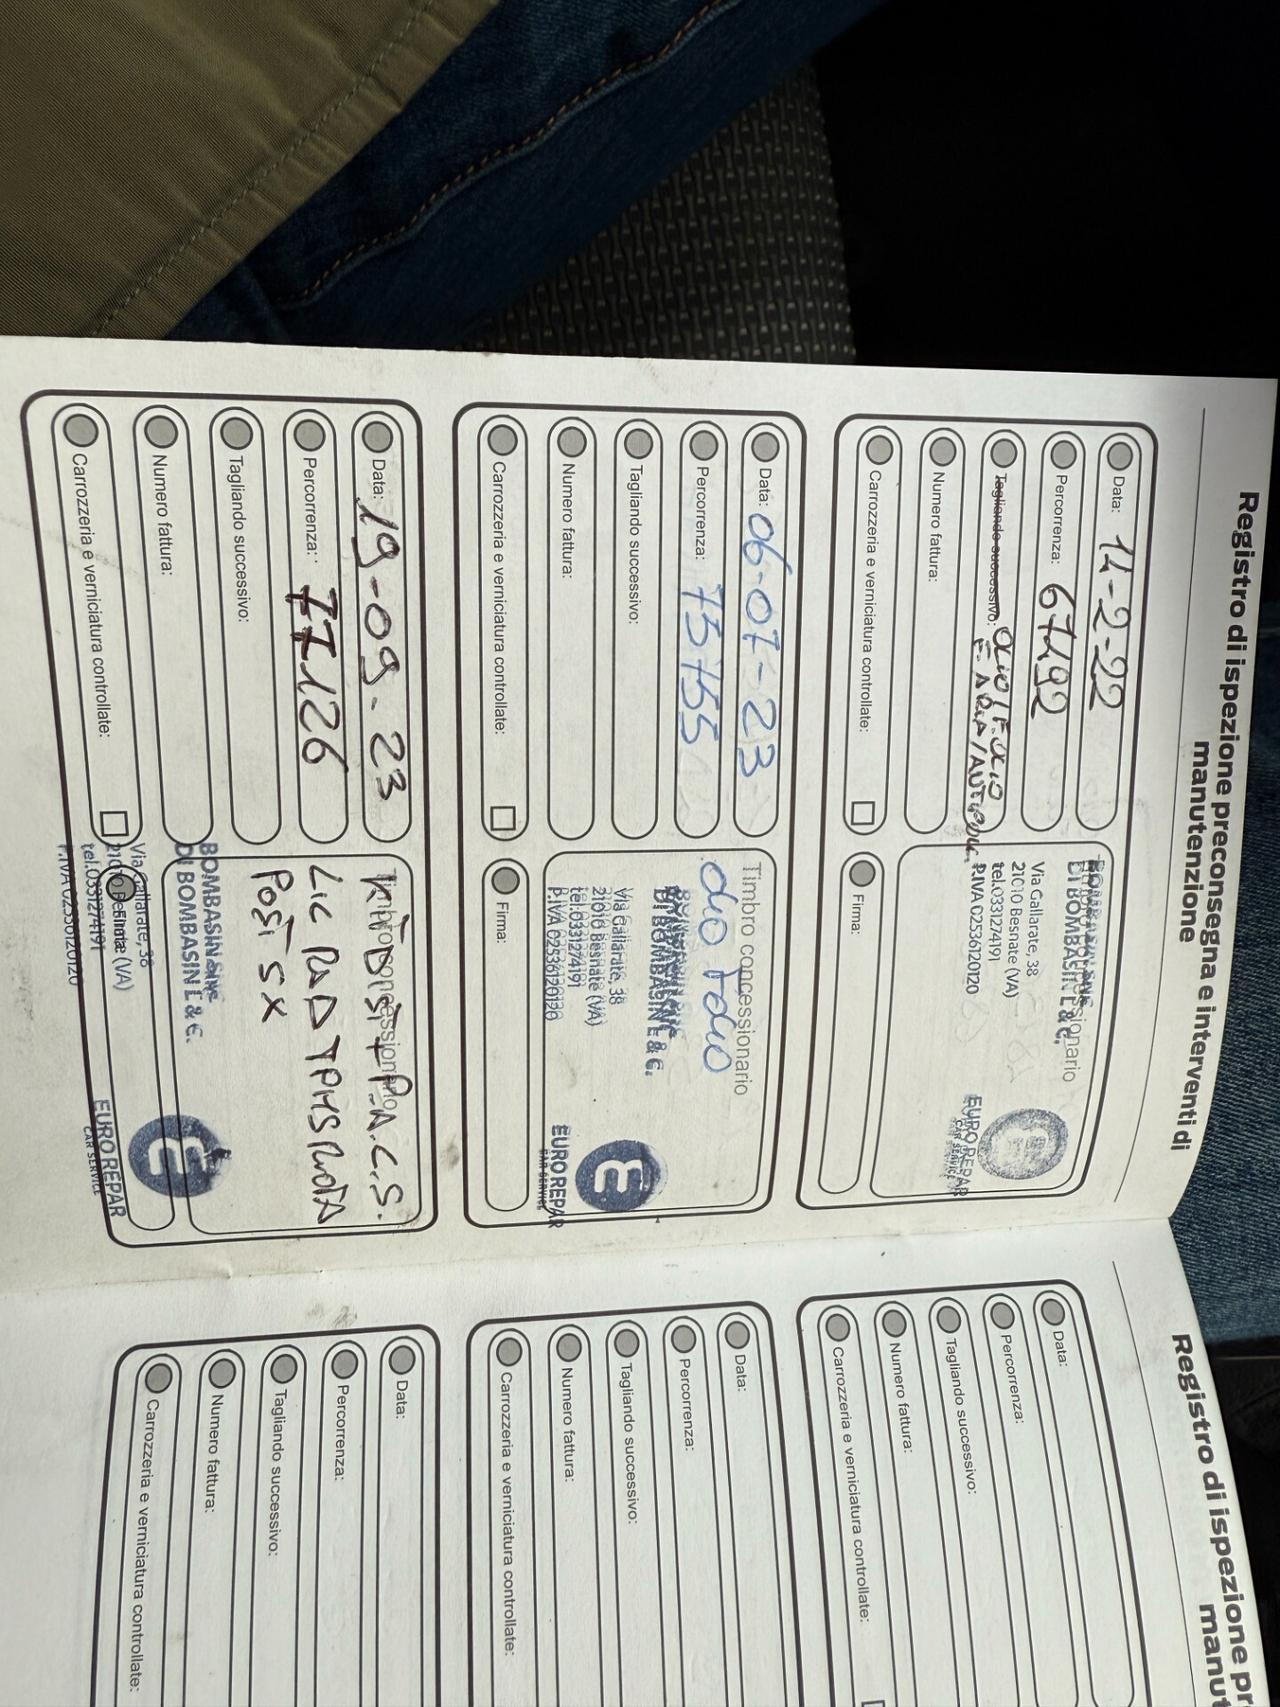 Registro di ispezione preconsegna e interventi di
manutenzione
Data: 14-2-22
Percorrenza: 67492
Tagliando successivo: OLIO / F. OLIO
F. ARIA / ANTIPOLL.
Numero fattura:
Carrozzeria e verniciatura controllate:
DI BOMBASIN E & C.
Via Gallarate, 38
21010 Besnate (VA)
tel.0331274191
P.IVA 02536120120
EUROREPAR
CAR SERVICE
Firma:
Data: 06-07-23
Percorrenza: 73755
Tagliando successivo:
Numero fattura:
Carrozzeria e verniciatura controllate:
Timbro concessionario
DI BOMBASIN E & C.
Via Gallarate, 38
21010 Besnate (VA)
tel.0331274191
P.IVA 02536120120
EUROREPAR
CAR SERVICE
Firma:
Data: 19-09-23
Percorrenza: 77126
Tagliando successivo:
Numero fattura:
Carrozzeria e verniciatura controllate:
Timbro concessionario
KIT DIST + P.A. C.S.
RUOTA
POST SX
BOMBASIN SNC
DI BOMBASIN E & C.
Via Gallarate, 38
21010 Besnate (VA)
tel.0331274191
P.IVA 02536120120
Firma:
EUROREPAR
CAR SERVICE
Registro di ispezione pr
manut
Data:
Percorrenza:
Tagliando successivo:
Numero fattura:
Carrozzeria e verniciatura controllate:
Data:
Percorrenza:
Tagliando successivo:
Numero fattura:
Carrozzeria e verniciatura controllate:
Data:
Percorrenza:
Tagliando successivo:
Numero fattura:
Carrozzeria e verniciatura controllate: